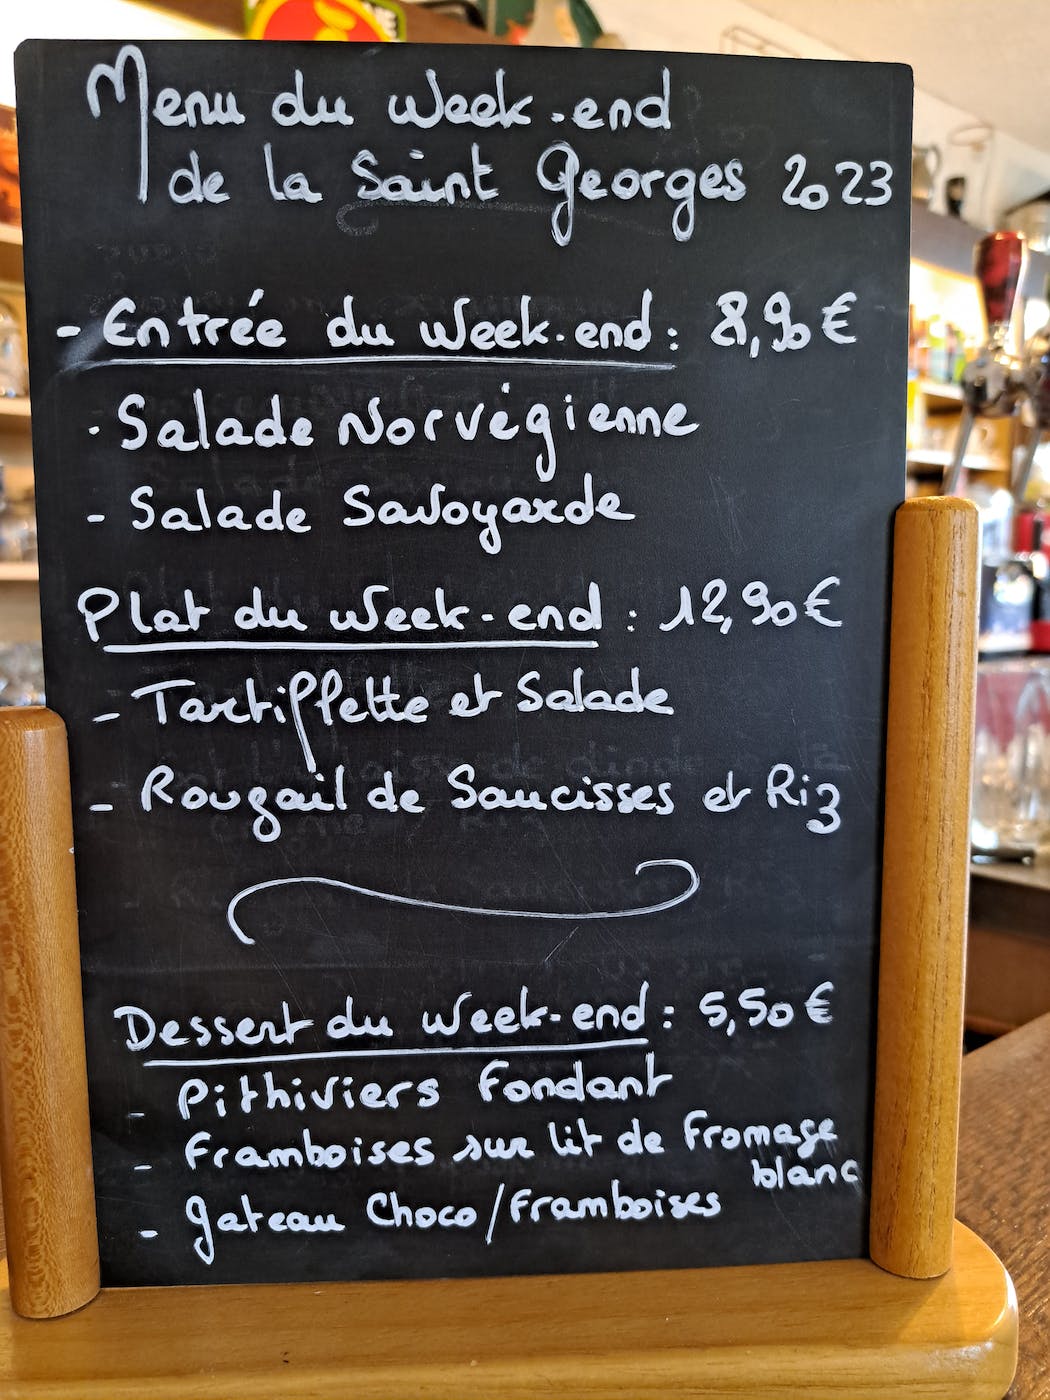 Menu du Week-end
de la Saint Georges 2023
- Entrée du Week-end : 8,90 €
- Salade Norvégienne
- Salade Savoyarde
Plat du Week-end : 12,90 €
- Tartiflette et Salade
- Rougail de Saucisses et Riz
Dessert du Week-end : 5,50 €
- Pithiviers Fondant
- Framboises sur lit de Fromage
blanc
- Gateau Choco/Framboises